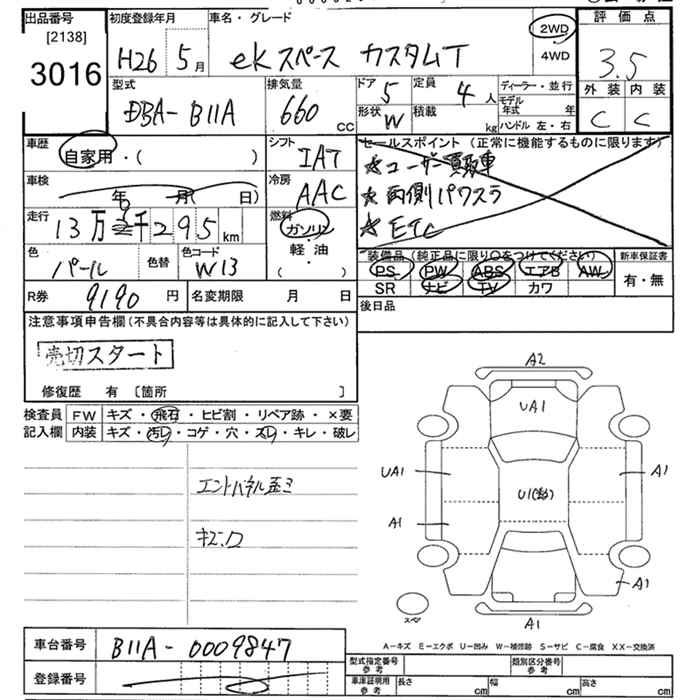 出品番号 初度登録年月 車名・グレード 評価点
[2138]
3016
H26 5月 ekスペース カスタムT
2WD
4WD
3.5
型式 排気量 ドア 定員 ディーラー・並行 外装 内装
DBA-B11A 660 cc 5 4人
形状 積載 モデル年式 年
W kg ハンドル 左・右
C C
車歴 シフト セールスポイント(正常に機能するものに限ります)
自家用・( ) IAT ★ユーザー買取車
車検 冷房 ★両側パワスラ
年 月( 日) AAC ★ETC
走行 燃料
13万 千295km ガソリン
軽・油
( )
色 色替 色コード 装備品(純正品に限り○をつけてください) 新車保証書
パール W13 PS PW ABS エアB AW 有・無
SR ナビ TV カワ
R券 9190円 名変期限 月 日 後日品
注意事項申告欄(不具合内容等は具体的に記入して下さい)
売切スタート
修復歴 有 [箇所 ]
検査員 FW キズ・飛石・ヒビ割・リペア跡・×要
記入欄 内装 キズ・汚レ・コゲ・穴・スレ・キレ・破レ
エンドパネル歪ミ
キズ.凹
A2
UA1
UA1
A1
A1
A1
A1
A1
スペア
A-キズ E-エクボ U-凹み W-補修跡 S-サビ C-腐食 XX-交換済
車台番号 B11A-0009847
登録番号
型式指定番号参考 類別区分番号参考
車庫証明用参考 長さ cm 幅 cm 高さ cm